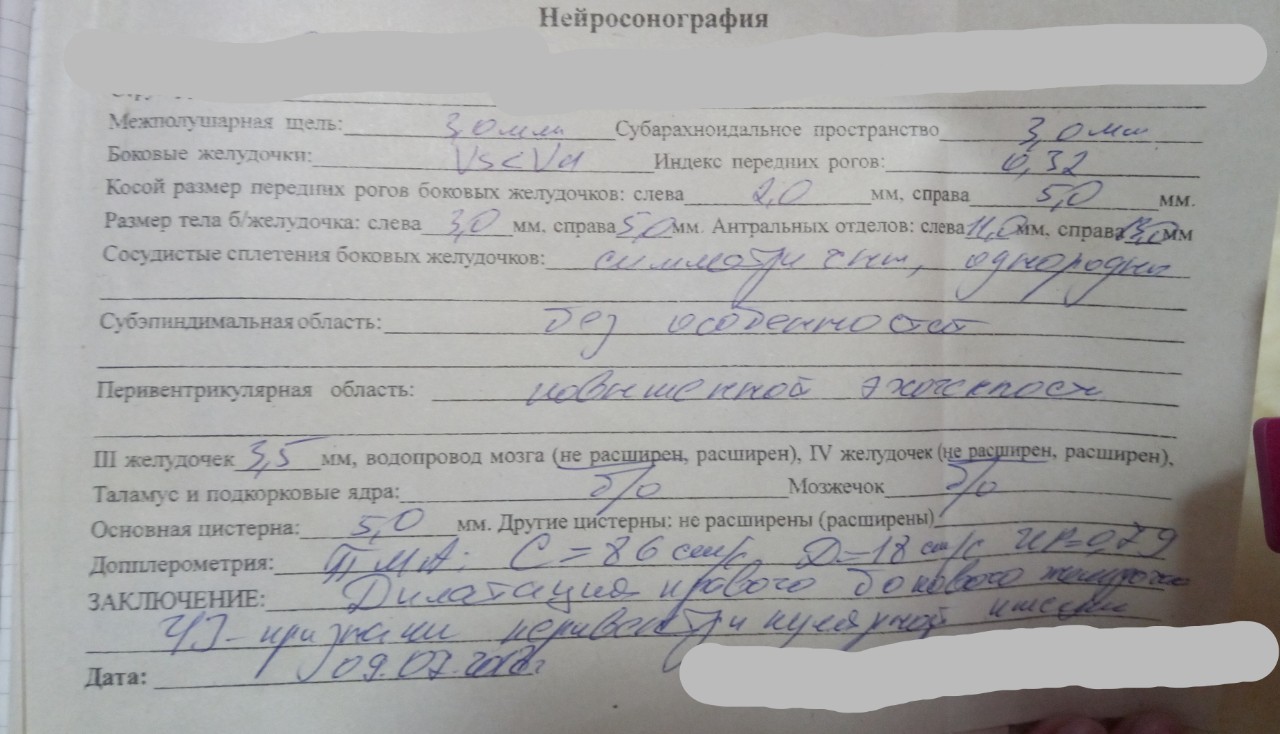 Нейросонография
Межполушарная щель: 3,0 мм Субарахноидальное пространство 3,0 мм
Боковые желудочки: Vs<Vd Индекс передних рогов: 0,32
Косой размер передних рогов боковых желудочков: слева 2,0 мм, справа 5,0 мм.
Размер тела б/желудочка: слева 3,0 мм. справа 5,0 мм. Антральных отделов: слева 11,0 мм, справа 13,0 мм
Сосудистые сплетения боковых желудочков: симметричны, однородны
Субэпиндимальная область: без особенностей
Перивентрикулярная область: повышенной эхогенности
III желудочек 3,5 мм, водопровод мозга (не расширен, расширен), IV желудочек (не расширен, расширен),
Таламус и подкорковые ядра: б/о Мозжечок б/о
Основная цистерна: 5,0 мм. Другие цистерны: не расширены (расширены)
Допплерометрия: ПМА: С=86 см/с Д=18 см/с ИР=0,79
ЗАКЛЮЧЕНИЕ: Дилатация правого бокового желудочка
УЗ-признаки перивентрикулярной ишемии
Дата: 09.07.